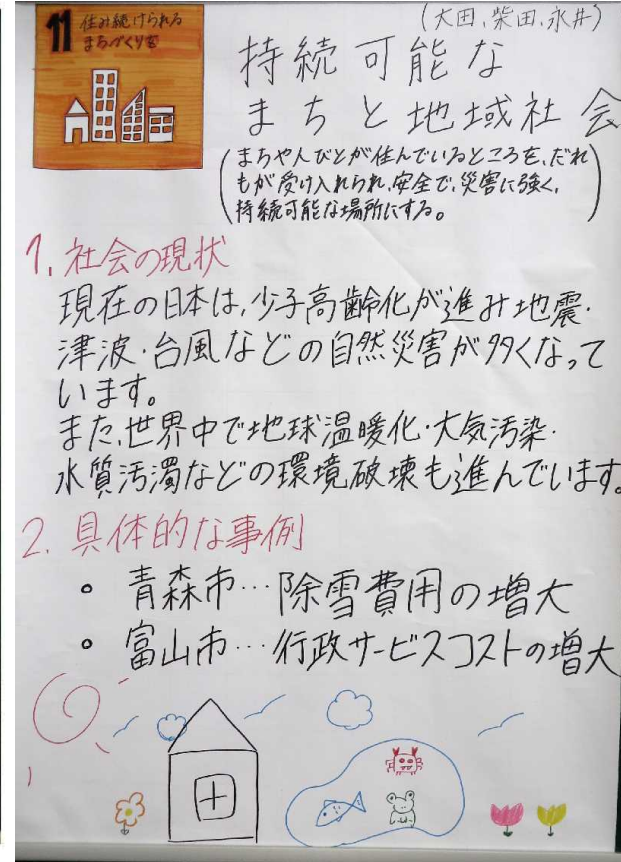 11 住み続けられる
まちづくりを
(大田、柴田、永井)
持続可能な
まちと地域社会
(まちや人びとが住んでいるところを、だれ
もが受け入れられ、安全で、災害に強く、
持続可能な場所にする。)
1. 社会の現状
現在の日本は、少子高齢化が進み地震・
津波・台風などの自然災害が多くなって
います。
また、世界中で地球温暖化・大気汚染・
水質汚濁などの環境破壊も進んでいます。
2. 具体的な事例
• 青森市…除雪費用の増大
• 富山市…行政サービスコストの増大